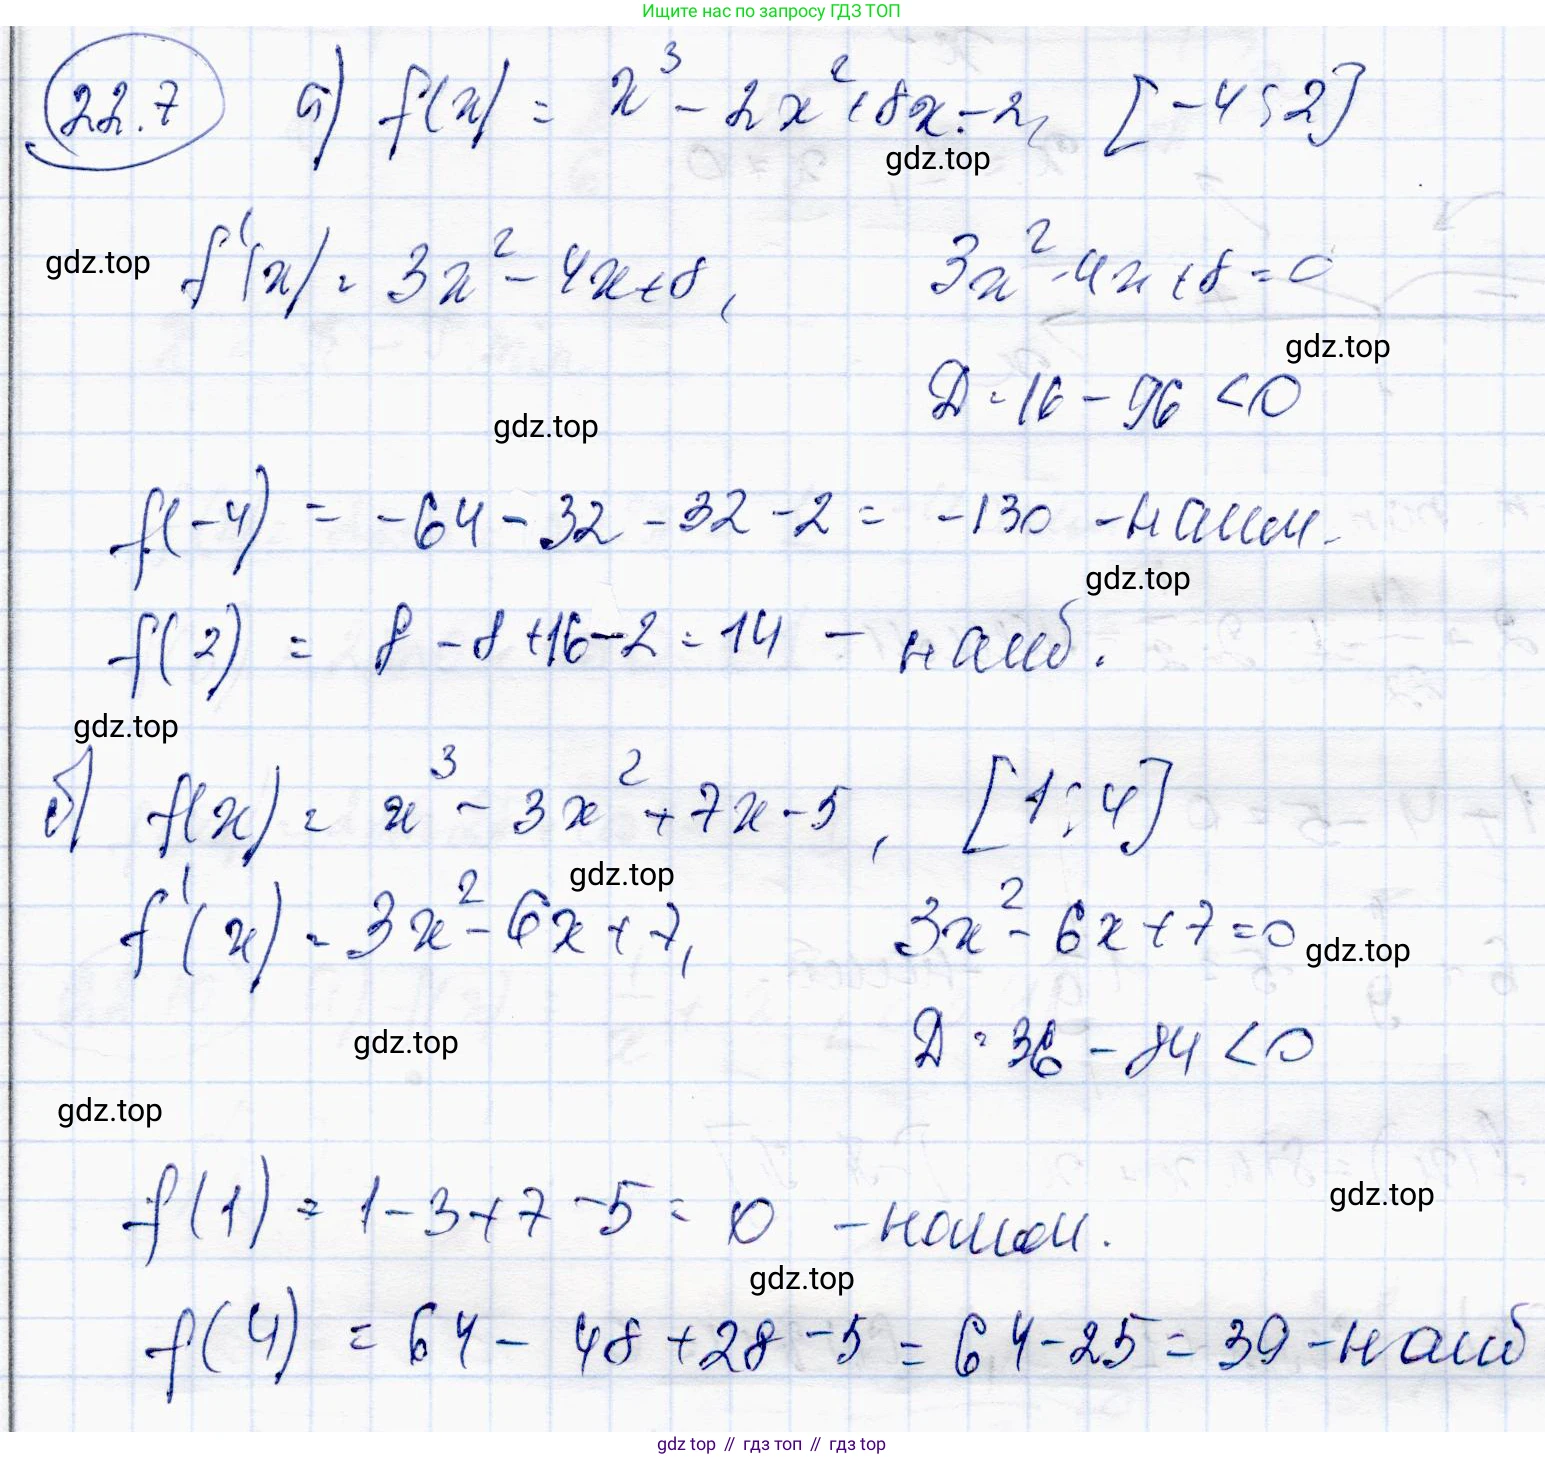 Ищите нас по запросу ГДЗ ТОП
22.7 а) f(x) = x³ - 2x² + 8x - 2, [-4; 2]
gdz.top
gdz.top
f'(x) = 3x² - 4x + 8, 3x² - 4x + 8 = 0
gdz.top
Д = 16 - 96 < 0
gdz.top
f(-4) = -64 - 32 - 32 - 2 = -130 - наим.
gdz.top
f(2) = 8 - 8 + 16 - 2 = 14 - наиб.
gdz.top
б) f(x) = x³ - 3x² + 7x - 5, [1; 4]
gdz.top
f'(x) = 3x² - 6x + 7, 3x² - 6x + 7 = 0
gdz.top
Д = 36 - 84 < 0
gdz.top
gdz.top
f(1) = 1 - 3 + 7 - 5 = 0 - наим.
gdz.top
gdz.top
f(4) = 64 - 48 + 28 - 5 = 64 - 25 = 39 - наиб
gdz top // гдз топ // gdz top